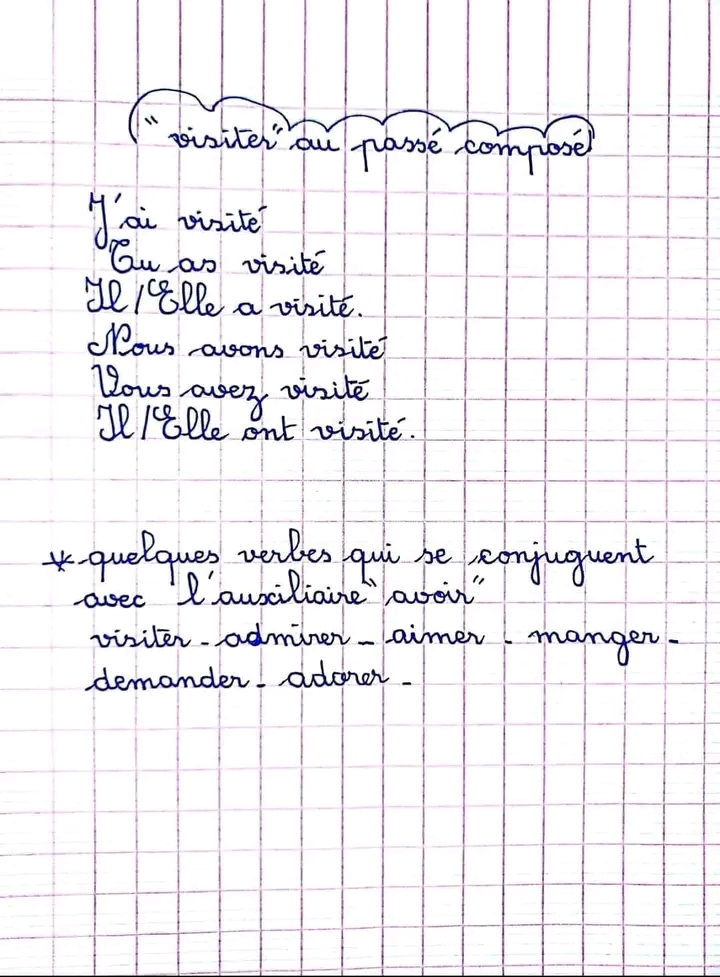 "visiter" au passé composé
J'ai visité
Tu as visité
Il/Elle a visité.
Nous avons visité
Vous avez visité
Il/Elle ont visité.
* quelques verbes qui se conjuguent
avec l'auxiliaire "avoir"
visiter - admirer - aimer - manger -
demander - adorer -